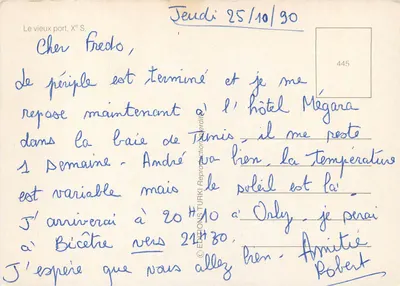 Le vieux port. X° S.
Jeudi 25/10/90
Cher Fredo,
445
Le périple est terminé et je me
repose maintenant à l'hôtel Mégara
dans la baie de Tunis, il me reste
1 semaine. André va bien, la température
est variable mais le soleil est là.
J'arriverai à 20H10 à Orly, je serai
à Bicêtre vers 21H30.
J'espère que vous allez bien. Amitié
Robert
© EDITIONS TURKI Reproduction interdite